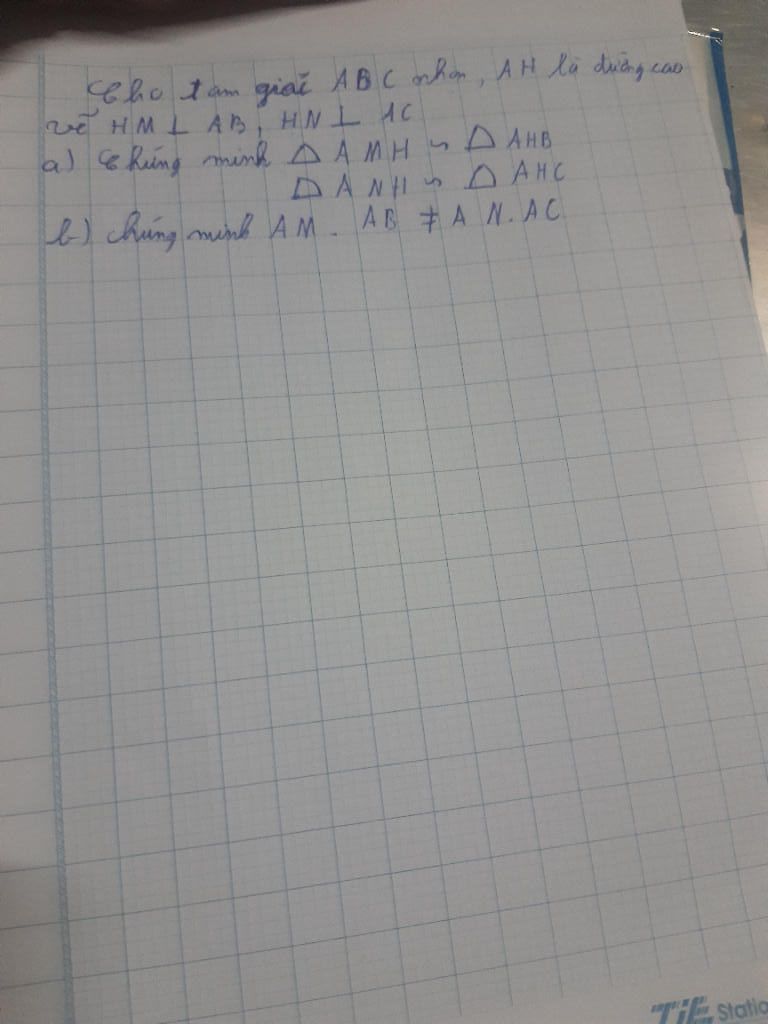 Cho tam giác ABC nhọn, AH là đường cao
vẽ HM ⊥ AB, HN ⊥ AC
a) Chứng minh Δ AMH ∽ Δ AHB
Δ ANH ∽ Δ AHC
b) Chứng minh AM. AB ≠ AN. AC
TiE Statio